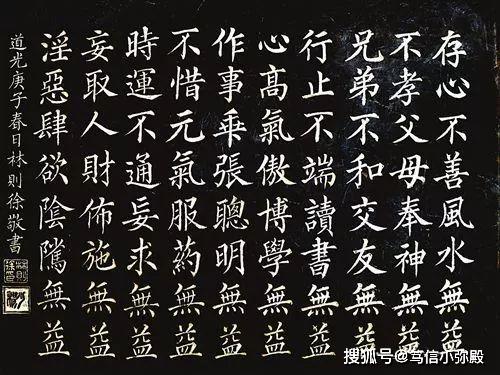 存心不善風水無益
不孝父母奉神無益
兄弟不和交友無益
行止不端讀書無益
心高氣傲博學無益
作事乖張聰明無益
不惜元氣服藥無益
時運不通妄求無益
妄取人財佈施無益
淫惡肆欲陰騭無益
道光庚子春日林則徐敬書
搜狐号@写信小弥殿